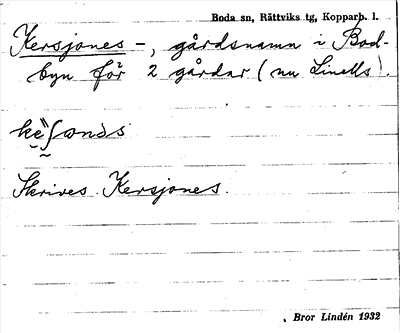 Boda sn, Rättviks tg, Kopparb. l.
Kersjones -, gårdsnamn i Bod-
byn för 2 gårdar (nu Linells).
Skrives Kersjones.
Bror Lindén 1932